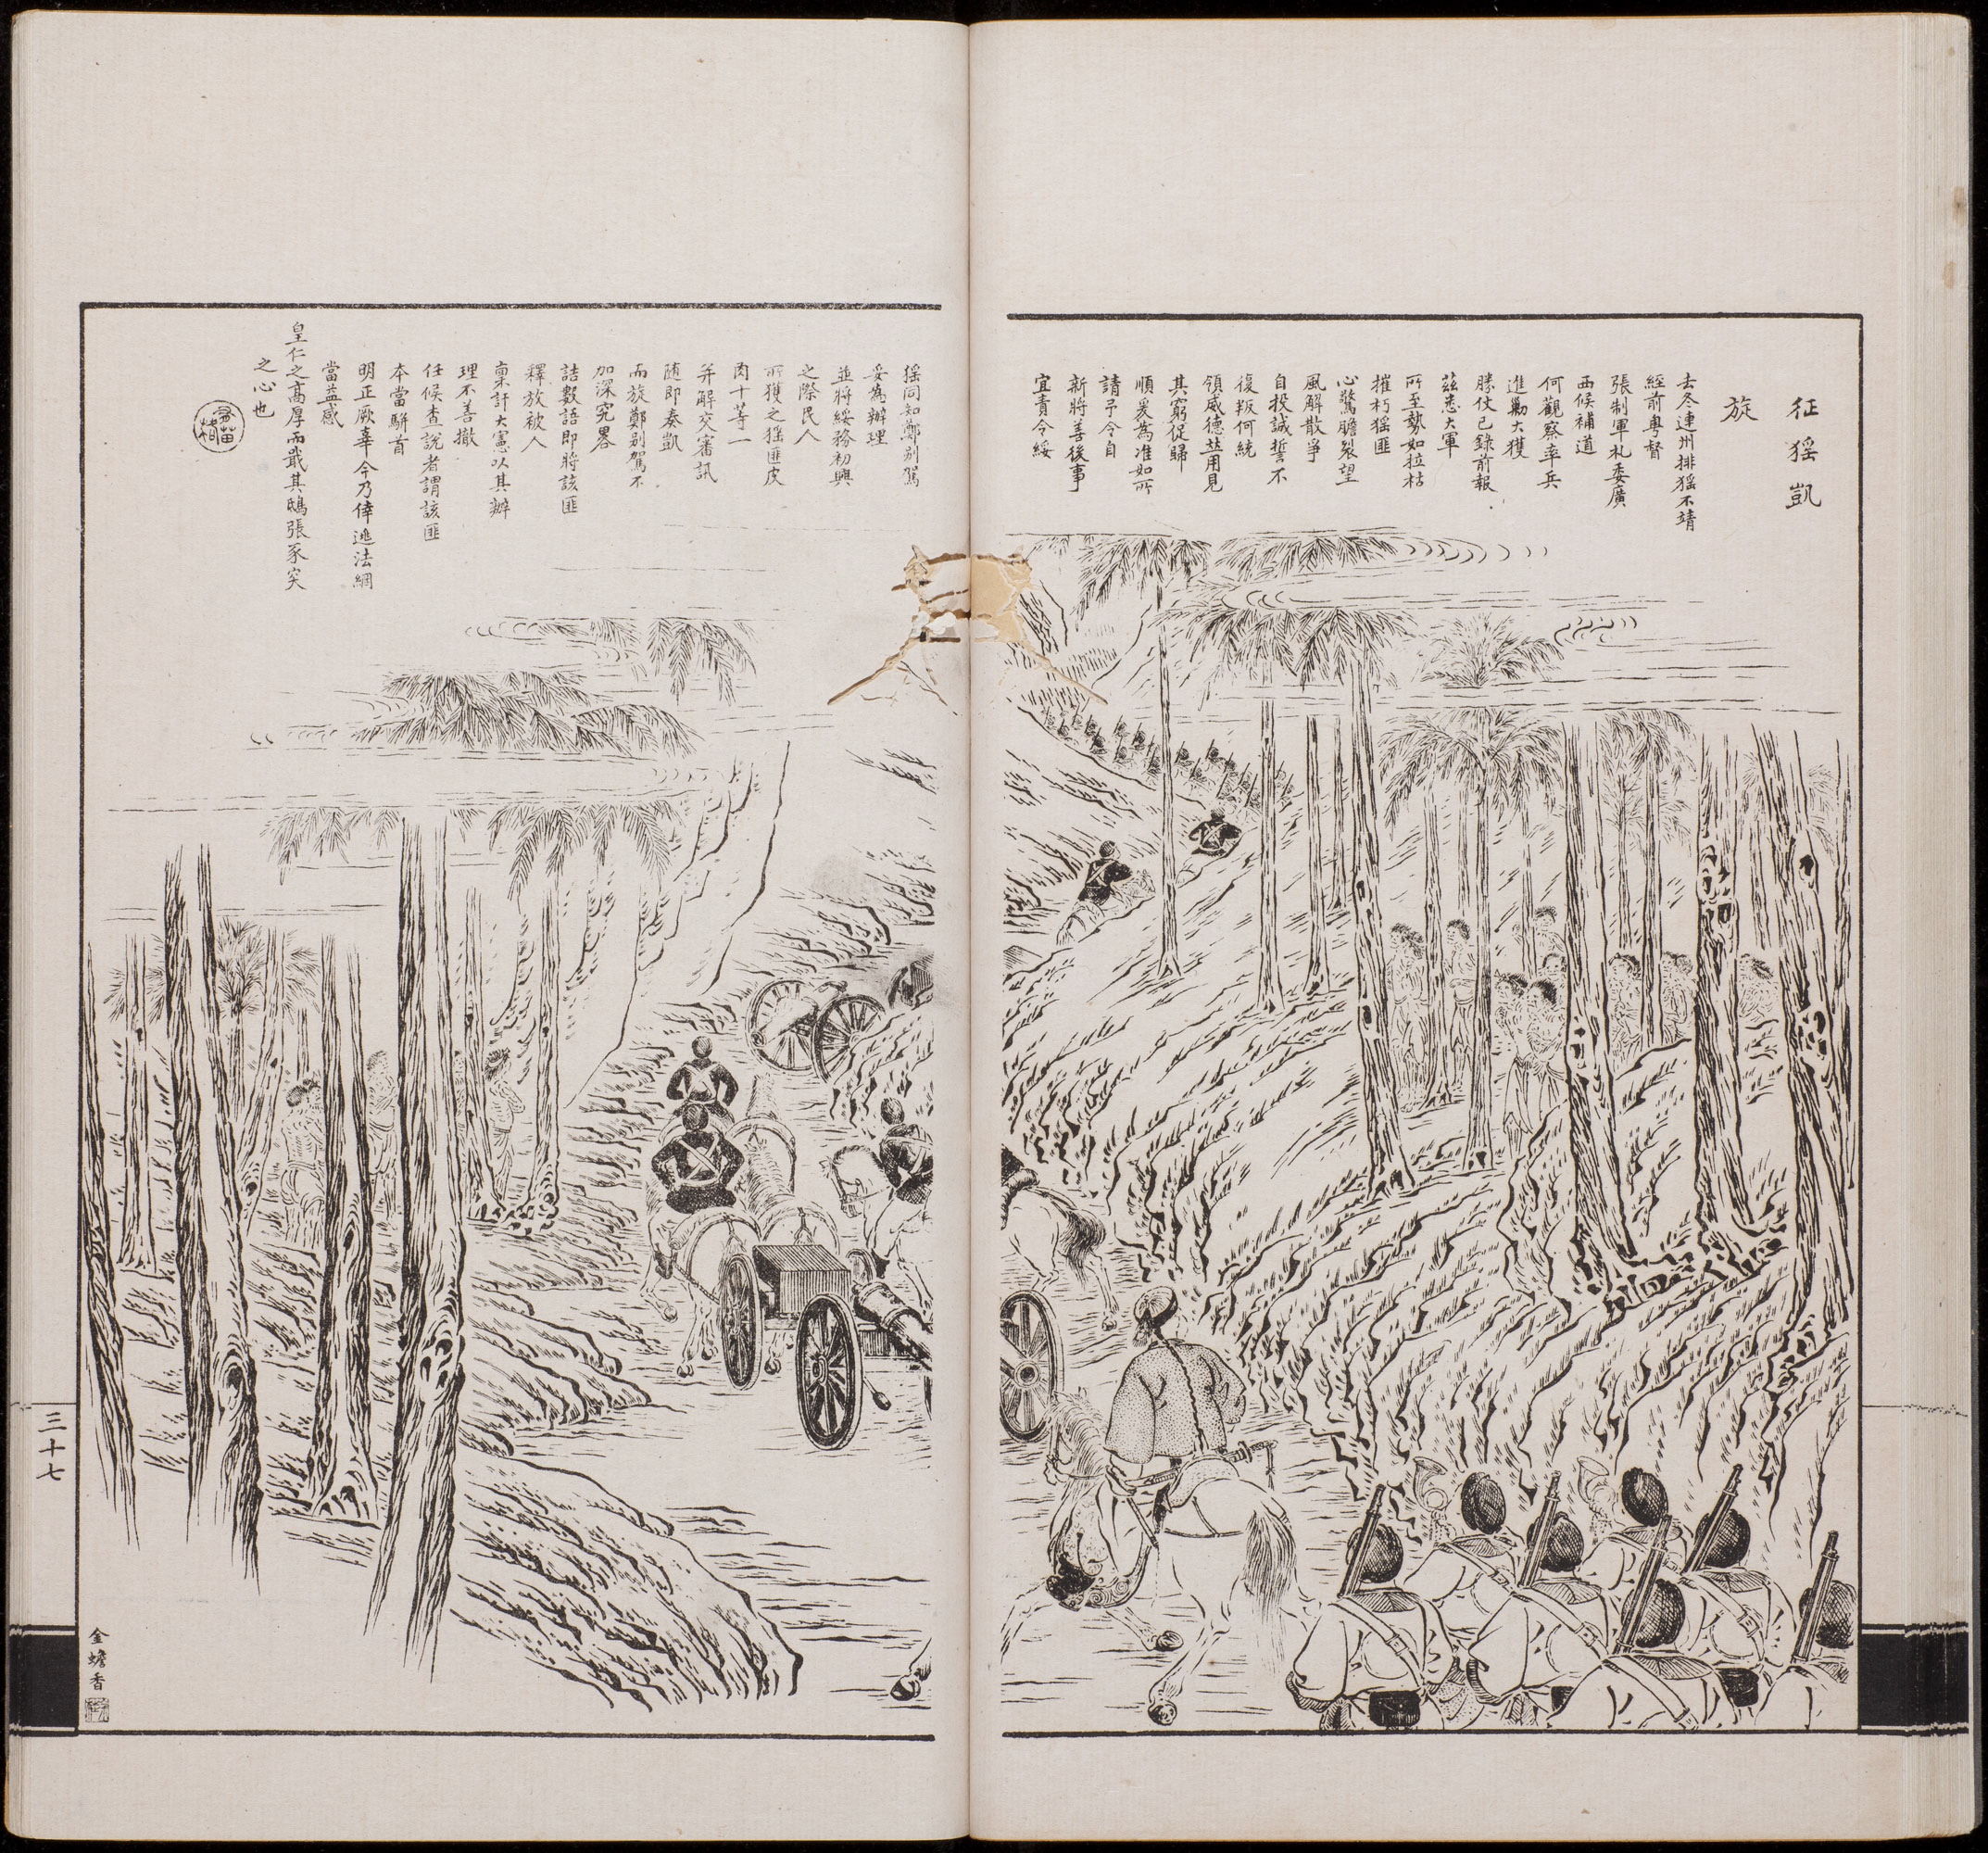 征猺凱
旋
去冬連州排猺不靖
經前粵督
張制軍札委廣
西候補道
何觀察率兵
進勦大獲
勝仗已錄前報
茲悉大軍
所至勢如拉枯
摧朽猺匪
心驚膽裂望
風解散爭
自投誠誓不
復叛何統
領威德並用見
其窮促歸
順爰為准如所
請予令自
新將善後事
宜責令綏
猺同知鄭別駕
妥為辦理
並將綏務初興
之際民人
所獲之猺匪皮
肉十等一
并解交審訊
隨即奏凱
而旋鄭別駕不
加深究畧
詰數語即將該匪
釋放被人
稟訐大憲以其辦
理不善撤
任候查說者謂該匪
本當駢首
明正厥辜今乃倖逃法網
當益感
皇仁之高厚而戢其鴟張豕突
之心也
三十七
金蟾香